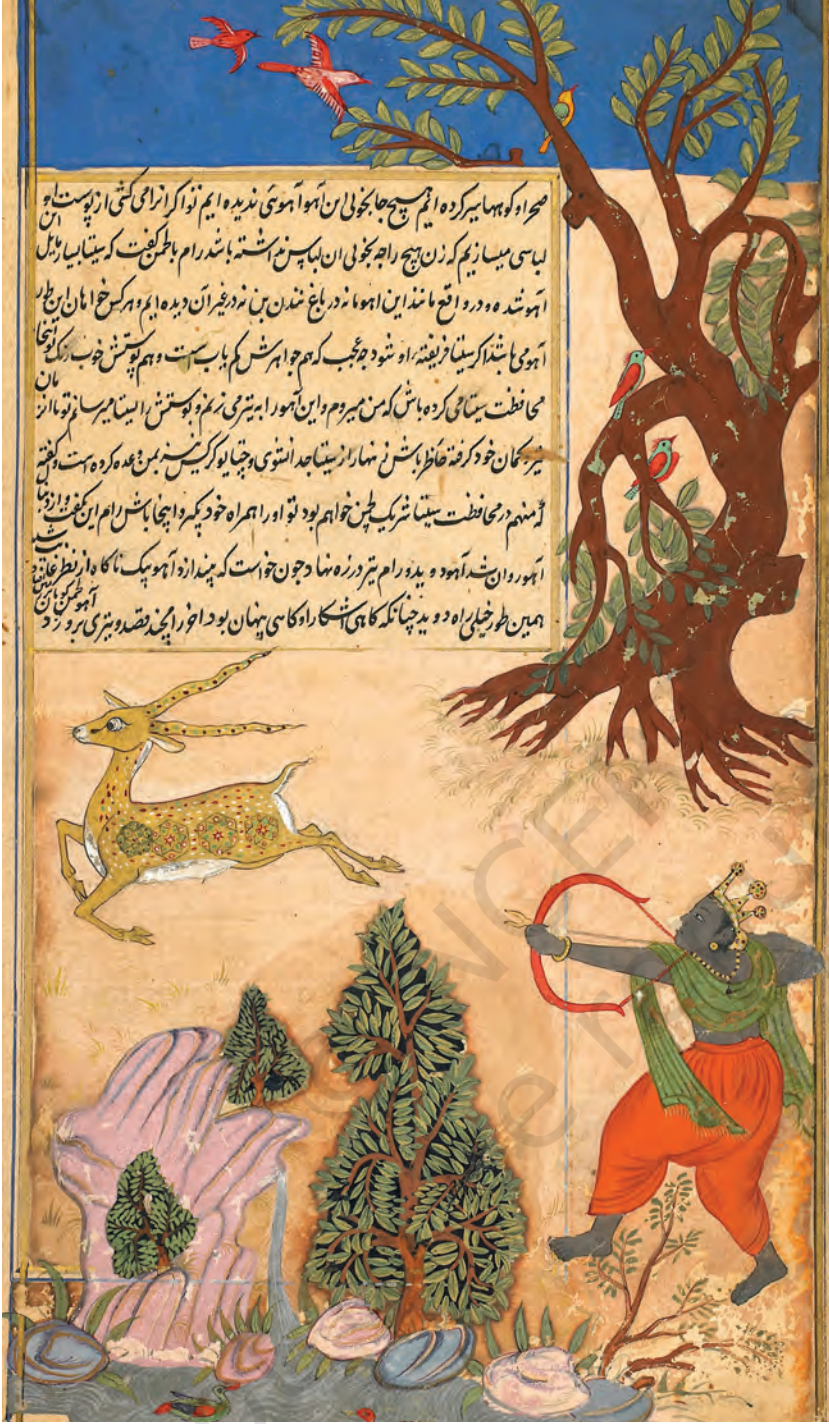 صحرا و کوهها سیر کرده ایم هیچ جا بخوبی این آهو آهوئی ندیده ایم تو اگر انرا می کشی از پوست او
لباسی میسازیم که زن هیچ راجه بخوبی ان لباس نداشته باشد رام بالچمن گفت که سیتا بسیار مایل این
آهو شده و در واقع مانند این اهو ما نه در باغ نندن بن نه در غیر آن دیده ایم و هر کس خواهان این طور
آهو می باشد اگر سیتا فریفته او شود چه عجب که هم جواهرش کم یاب است و هم پوستش خوب رنگ تو اینجا
محافظت سیتا می کرده باش که من میروم و این آهو را به تیر می زنم و پوستش را بسیتا میرسانم تو
تیر و کمان خود گرفته حاظر باش زنهار از سیتا جدا نشوی و جتایو کرکس نیز بمن وعده کرده است و گفته
که منهم در محافظت سیتا شریک لچمن خواهم بود تو او را همراه خود بگیر و اینجا باش رام این گفت و از دنبال
آهو روان شد آهو دوید و رام تیر در زه نهاد چون خواست که بیندازد آهو بیک ناکاه از نظر غایب شد
همین طور خیلی راه دوید چنانکه کاهی اشکارا و کاهی پنهان بود اخر رامچند قصد و تیری برو زد